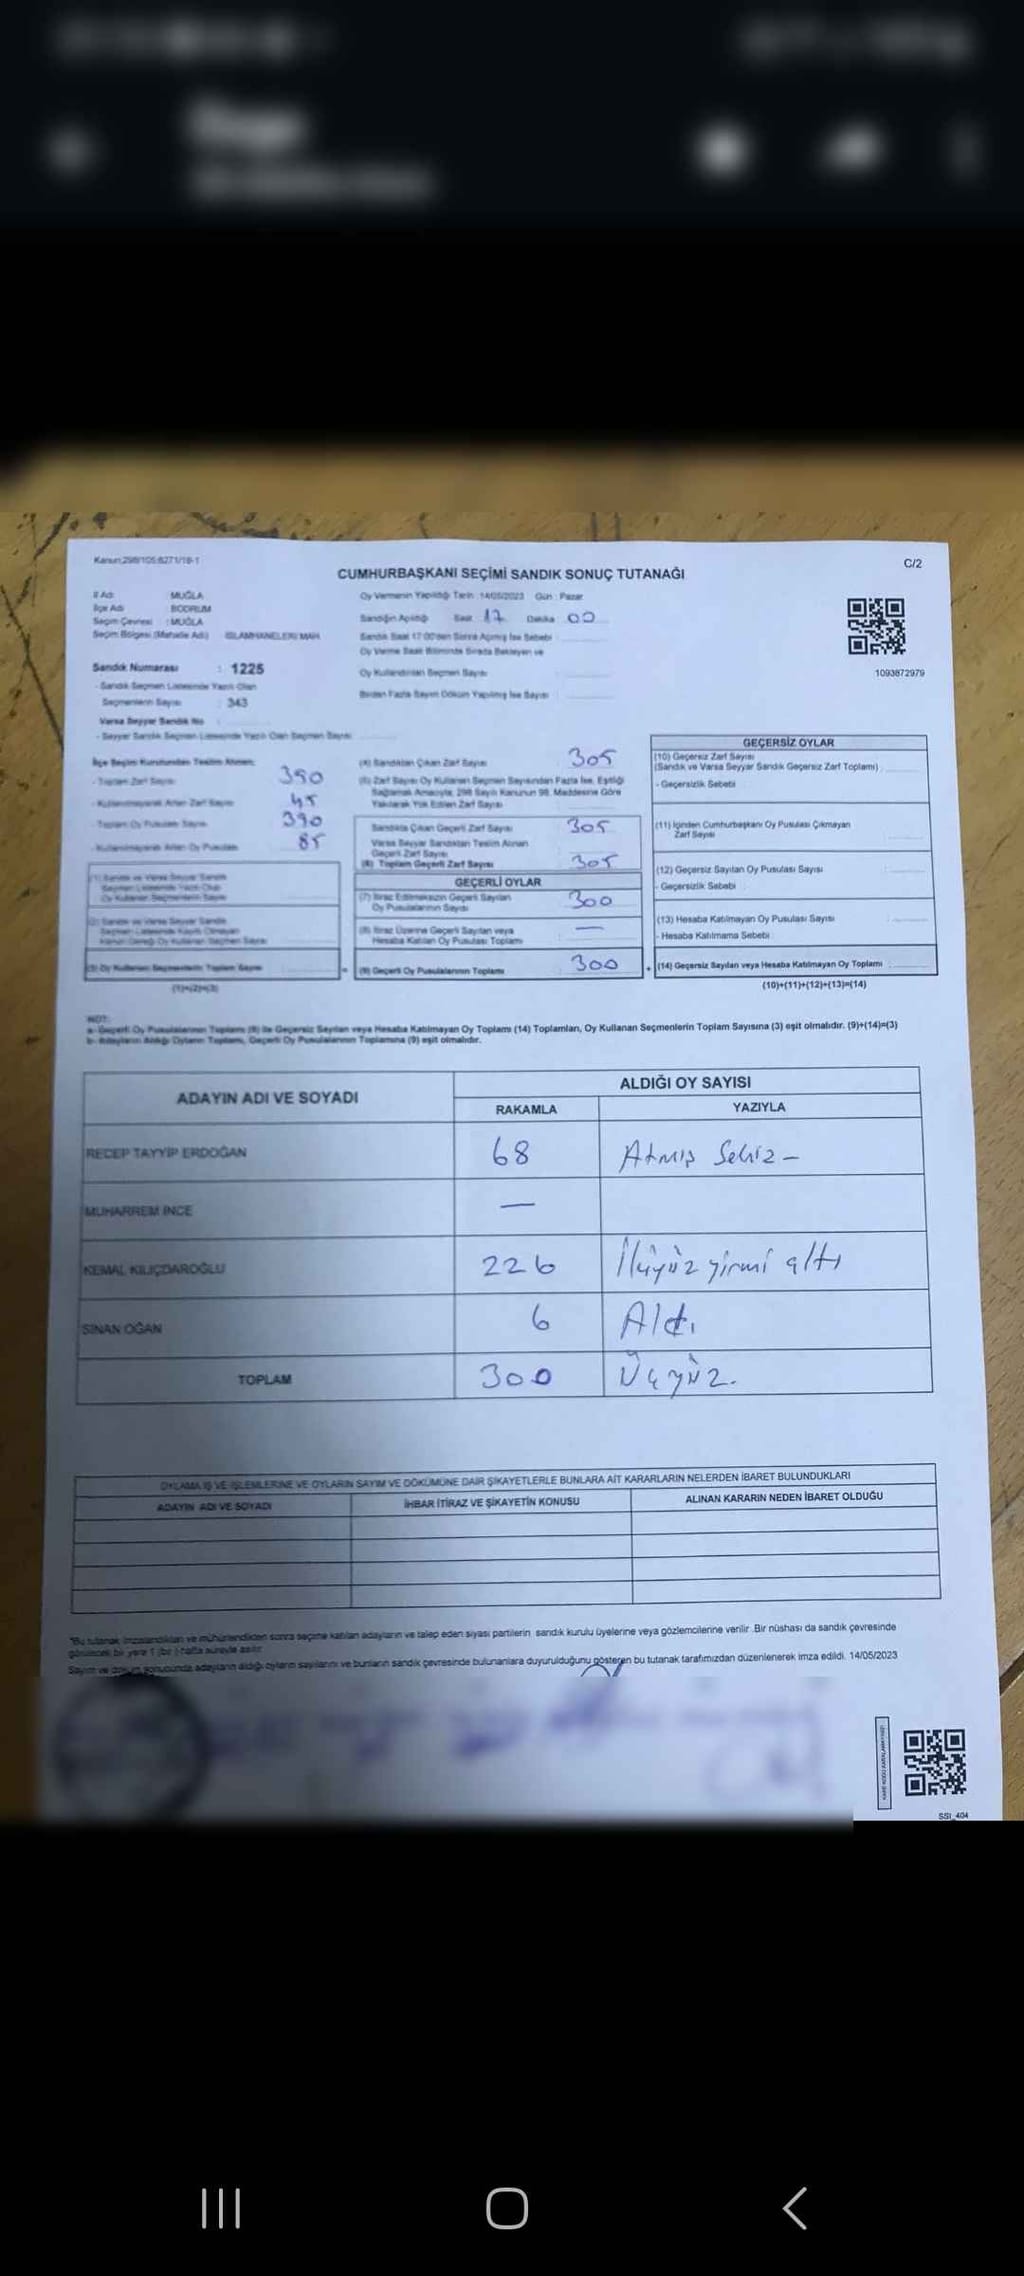 Kanun:298/105;6271/18-1
C/2
CUMHURBAŞKANI SEÇİMİ SANDIK SONUÇ TUTANAĞI
İl Adı : MUĞLA
İlçe Adı : BODRUM
Seçim Çevresi : MUĞLA
Seçim Bölgesi (Mahalle Adı) : İSLAMHANELERİ MAH.
Sandık Numarası : 1225
- Sandık Seçmen Listesinde Yazılı Olan
Seçmenlerin Sayısı : 343
Varsa Seyyar Sandık No :
- Seyyar Sandık Seçmen Listesinde Yazılı Olan Seçmen Sayısı :
Oy Vermenin Yapıldığı Tarih : 14/05/2023 Gün : Pazar
Sandığın Açıldığı Saat : 17 Dakika : 00
Sandık Saat 17:00'den Sonra Açılmış İse Sebebi :
Oy Verme Saati Bitiminde Sırada Bekleyen ve
Oy Kullandırılan Seçmen Sayısı
Birden Fazla Sayım Döküm Yapılmış İse Sayısı
1093872979
İlçe Seçim Kurulundan Teslim Alınan;
- Toplam Zarf Sayısı 390
- Kullanılmayarak Artan Zarf Sayısı 45
- Toplam Oy Pusulası Sayısı 390
- Kullanılmayarak Artan Oy Pusulası 85
(1) Sandık ve Varsa Seyyar Sandık
Seçmen Listesinde Yazılı Olup
Oy Kullanan Seçmenlerin Sayısı
(2) Sandık ve Varsa Seyyar Sandık
Seçmen Listesinde Kayıtlı Olmayan
Kanun Gereği Oy Kullanan Seçmen Sayısı
(3) Oy Kullanan Seçmenlerin Toplam Sayısı
(1)+(2)=(3)
(4) Sandıktan Çıkan Zarf Sayısı 305
(5) Zarf Sayısı Oy Kullanan Seçmen Sayısından Fazla İse, Eşitliği
Sağlamak Amacıyla, 298 Sayılı Kanunun 98. Maddesine Göre
Yakılarak Yok Edilen Zarf Sayısı
Sandıkta Çıkan Geçerli Zarf Sayısı 305
Varsa Seyyar Sandıktan Teslim Alınan
Geçerli Zarf Sayısı
(6) Toplam Geçerli Zarf Sayısı 305
GEÇERLİ OYLAR
(7) İtiraz Edilmeksizin Geçerli Sayılan
Oy Pusulalarının Sayısı 300
(8) İtiraz Üzerine Geçerli Sayılan veya
Hesaba Katılan Oy Pusulası Toplamı —
(9) Geçerli Oy Pusulalarının Toplamı 300
GEÇERSİZ OYLAR
(10) Geçersiz Zarf Sayısı
(Sandık ve Varsa Seyyar Sandık Geçersiz Zarf Toplamı)
- Geçersizlik Sebebi :
(11) İçinden Cumhurbaşkanı Oy Pusulası Çıkmayan
Zarf Sayısı
(12) Geçersiz Sayılan Oy Pusulası Sayısı
- Geçersizlik Sebebi :
(13) Hesaba Katılmayan Oy Pusulası Sayısı
- Hesaba Katılmama Sebebi :
(14) Geçersiz Sayılan veya Hesaba Katılmayan Oy Toplamı
(10)+(11)+(12)+(13)=(14)
NOT:
a- Geçerli Oy Pusulalarının Toplamı (9) ile Geçersiz Sayılan veya Hesaba Katılmayan Oy Toplamı (14) Toplamları, Oy Kullanan Seçmenlerin Toplam Sayısına (3) eşit olmalıdır. (9)+(14)=(3)
b- Adayların Aldığı Oyların Toplamı, Geçerli Oy Pusulalarının Toplamına (9) eşit olmalıdır.
ADAYIN ADI VE SOYADI
ALDIĞI OY SAYISI
RAKAMLA YAZIYLA
RECEP TAYYİP ERDOĞAN 68 Atmış Sekiz –
MUHARREM İNCE —
KEMAL KILIÇDAROĞLU 226 İkiyüz yirmi altı
SİNAN OĞAN 6 Altı
TOPLAM 300 Üçyüz.
OYLAMA İŞ VE İŞLEMLERİNE VE OYLARIN SAYIM VE DÖKÜMÜNE DAİR ŞİKAYETLERLE BUNLARA AİT KARARLARIN NELERDEN İBARET BULUNDUKLARI
ADAYIN ADI VE SOYADI İHBAR İTİRAZ VE ŞİKAYETİN KONUSU ALINAN KARARIN NEDEN İBARET OLDUĞU
*Bu tutanak imzalandıktan ve mühürlendikten sonra seçime katılan adayların ve talep eden siyasi partilerin sandık kurulu üyelerine veya gözlemcilerine verilir. Bir nüshası da sandık çevresinde
görülecek bir yere 1 (bir ) hafta süreyle asılır.
Sayım ve döküm sonucunda adayların aldığı oyların sayılarını ve bunların sandık çevresinde bulunanlara duyurulduğunu gösteren bu tutanak tarafımızdan düzenlenerek imza edildi. 14/05/2023
SSI_404